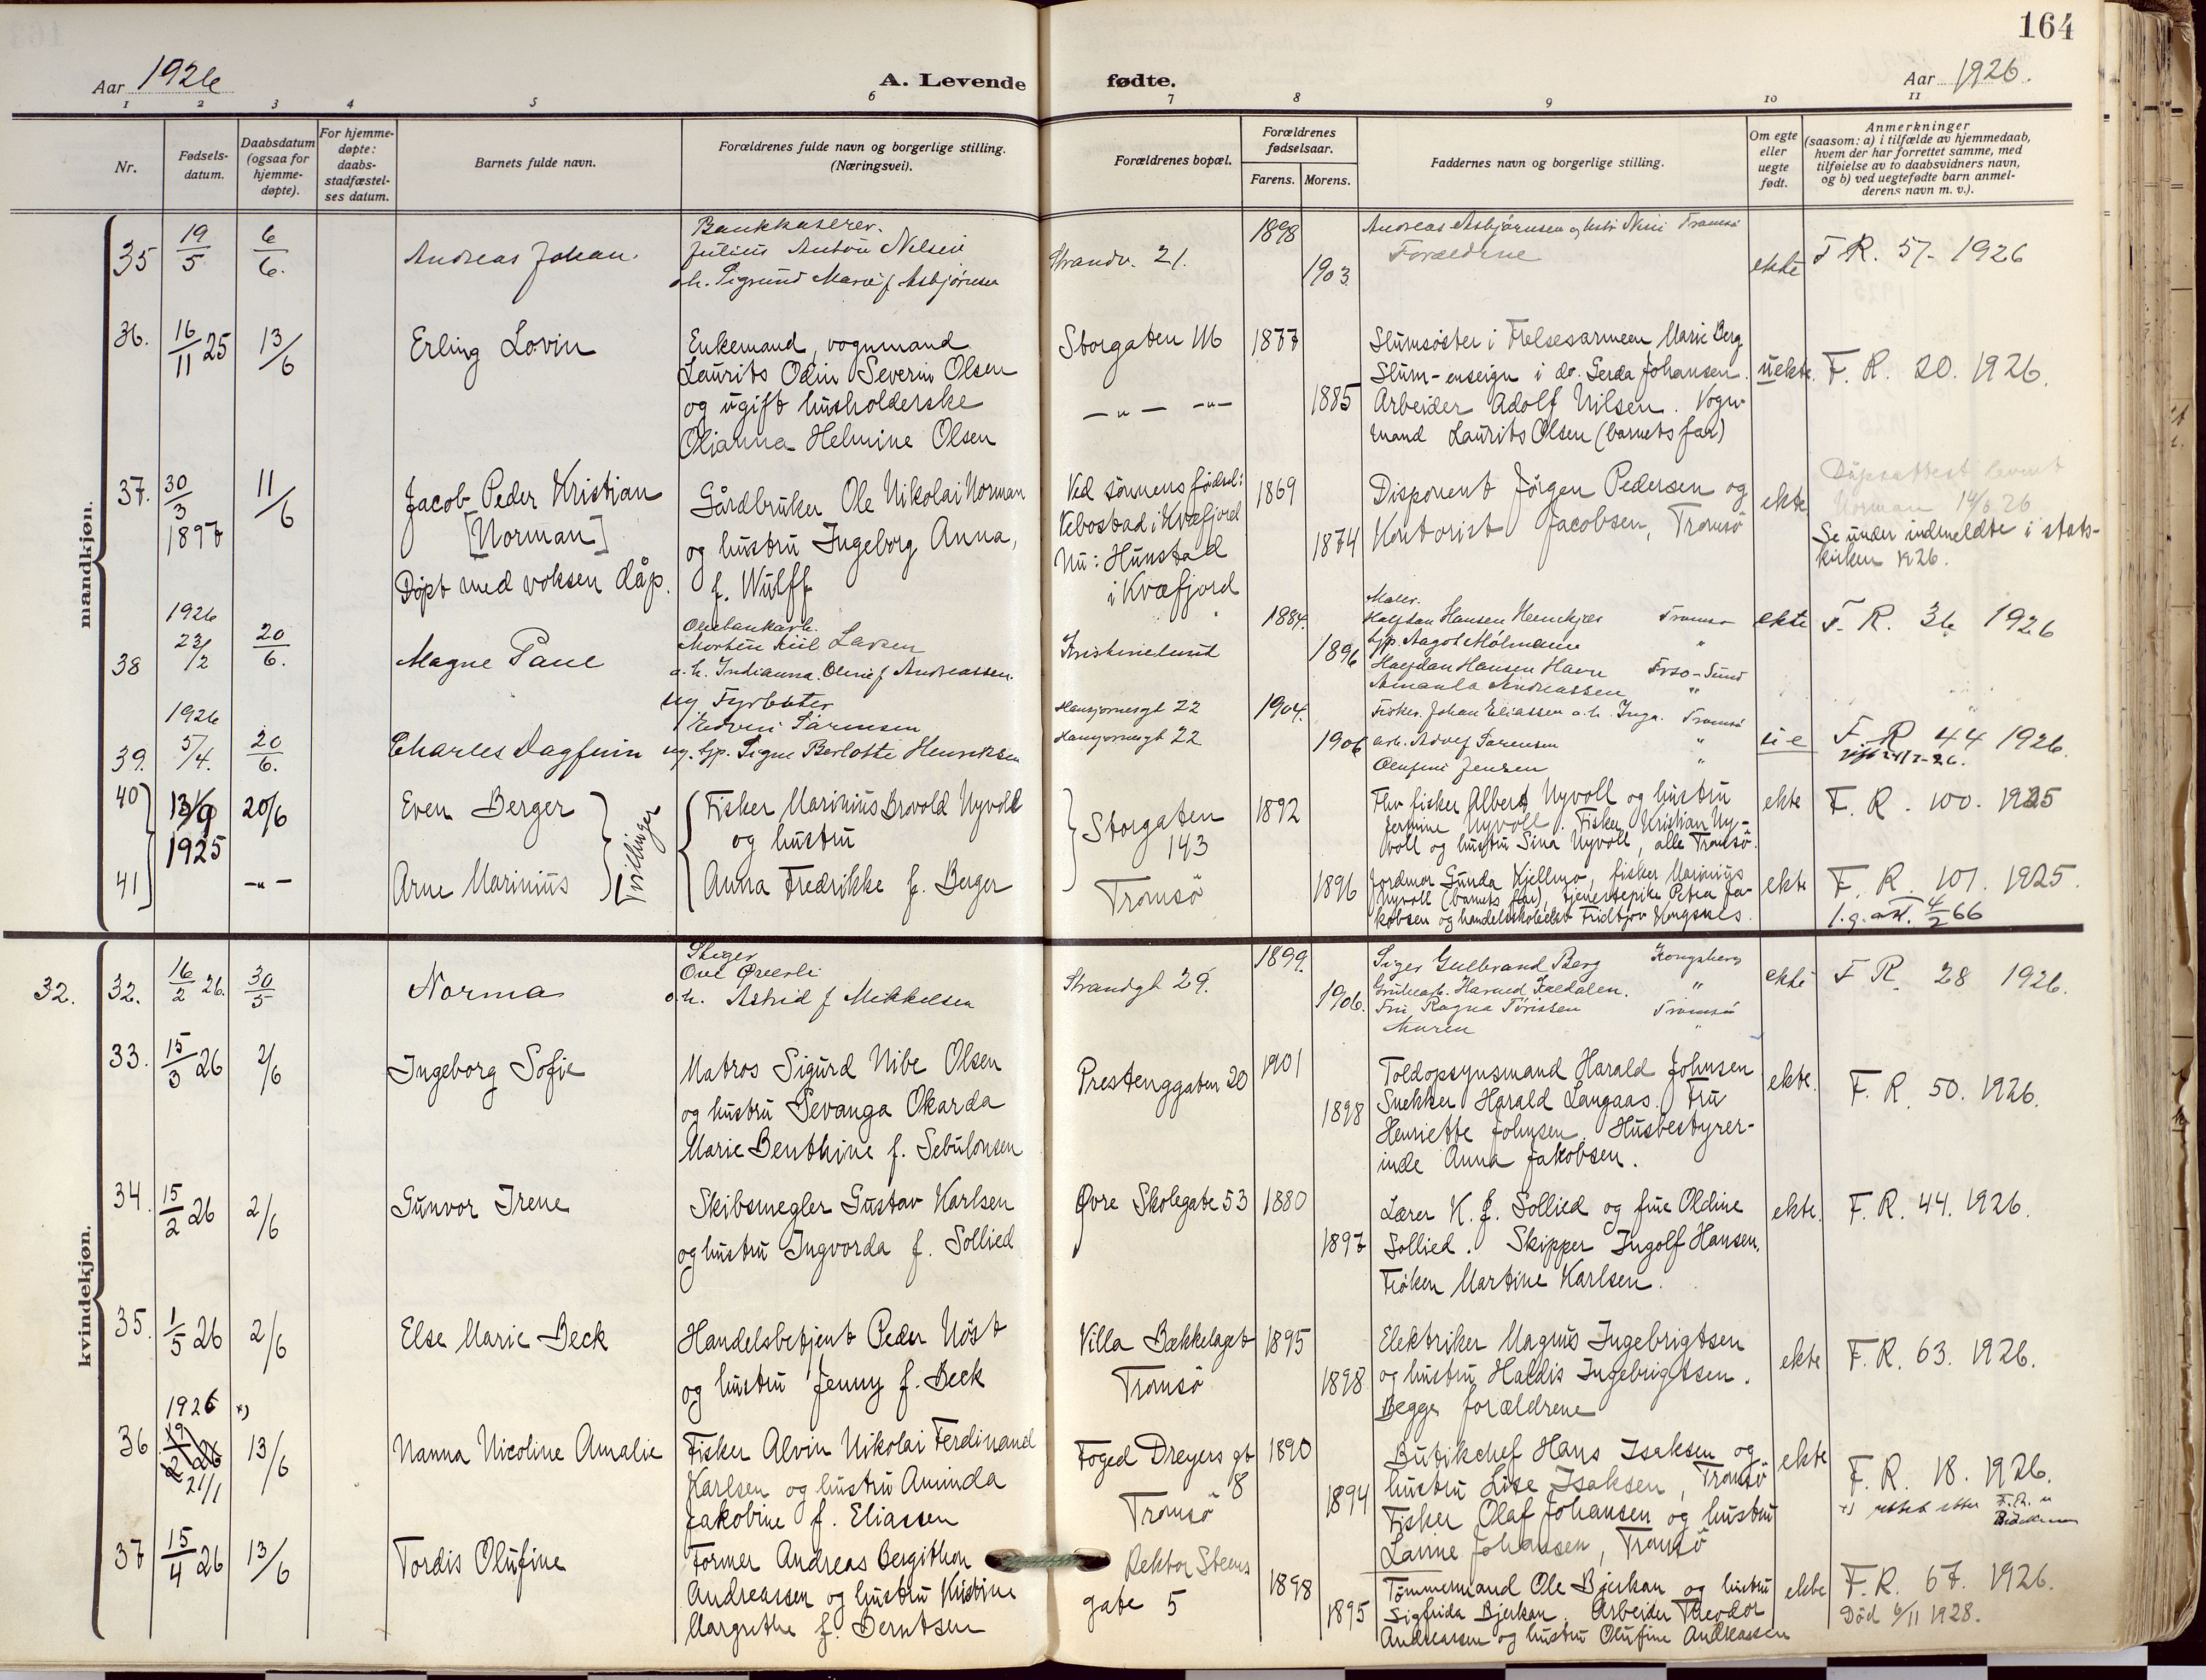 164
Aar 1926
A. Levende fødte.
Aar 1926.
1 2 3 4 5 6 7 8 9 10 11
Nr.
Fødsels-
datum.
Daabsdatum
(ogsaa for
hjemme-
døpte).
For hjemme-
døpte:
daabs-
stadfæstel-
ses datum.
Barnets fulde navn.
Forældrenes fulde navn og borgerlige stilling.
(Næringsvei).
Forældrenes bopæl.
Forældrenes
fødselsaar.
Farens. Morens.
Faddernes navn og borgerlige stilling.
Om egte
eller
uegte
født.
Anmerkninger
(saasom: a) i tilfælde av hjemmedaab,
hvem der har forrettet samme, med
tilføielse av to daabsvidners navn,
og b) ved uegtefødte barn anmel-
derens navn m. v.).
mandkjøn.
35 19/5 6/6. Andreas Johan.
Bankkaserer.
Julius Anton Nilsen
o.h. Sigrund Marie f Asbjørnsen
Strandv. 21.
1898
1903.
Andreas Asbjørnsen og hstr Nini Tromsø
Forældrene
ekte
F.R. 57- 1926
36. 16/11 25 13/6 Erling Lovin
Enkemand, vognmand
Laurits Odin Severin Olsen
og ugift husholderske
Oljanna Helmine Olsen
Storgaten 111
— " — — " —
1877
1885
Slumsöster i Frelsesarmeen Marie Berg
Slum-enseign i do. Gerda Johansen.
Arbeider Adolf Nilsen. Vogn-
mand Laurits Olsen (barnets far)
uekte.
F. R. 20. 1926.
37. 30/3 1897 11/6
Jacob Peder Kristian
[Norman]
Döpt med voksen dåp.
Gårdbruker Ole Nikolai Norman
og hustru Ingeborg Anna,
f. Wulff
Ved sönnens födsel:
Vebostad i Kvæfjord
Nu: Hunstad
i Kvæfjord
1869
1874
Disponent Jörgen Pedersen og
Kontorist Jacobsen, Tromsö
ekte
Dåpsattest levert
Norman 14/6 26
Se under indmeldte i stats-
kirken 1926.
38 1926 23/2 20/6. Magne Paul
Morten Kiil Larsen
o.h. Indianna Oline f Andreassen.
Kristinelund
1884.
1896
Maler.
Halfdan Hansen Hemkjær Tromsø
tjp. Aagot Molmann "
Halfdan Hansen Havn
Amanda Andreassen "
ekte
F. R. 36 1926
39. 1926 5/4. 20/6. Charles Dagfinn
ug. Fyrbøter
Edvin Sørensen
ug. tjp. Signe Berlotte Henriksen
Hansjornesgt 22
Hansjornesgt 22
1904.
1906
Fisker. Johan Eliassen o.h. Inga. Tromsø
arb. Adolf Sørensen "
Olufine Jensen "
u e
F. R 44 1926.
40 13/9 1925 20/6 Even Berger
41 — " — Arne Marinius
Tvillinger
Fisker Marinius Brovold Nyvoll
og hustru
Anna Fredrikke f. Berger
Storgaten
143
Tromsö
1892
1896
Fhv fisker Albert Nyvoll og hustru
Jermine Nyvoll. Fisker Kristian Ny-
voll og hustru Sina Nyvoll, alle Tromsö.
Jordmor Gunda Kjellmo, fisker Marinius
Nyvoll (barnets far), tjenestepike Petra Ja-
kobsen og handelsskoleelev Fridtjov Kongsnes.
ekte
ekte
F. R. 100. 1925
F. R. 101. 1925.
l.g. att. 4/2 66
kvindekjøn.
32. 32. 16/2 26. 30/5 Norma
Stiger
Ove Øverli
o.h. Astrid f Mikkelsen
Strandgt 29.
1899.
1906.
Stiger Gulbrand Berg Kongsberg
Grubearb. Harald Kaldalen. "
Frk Ragna Törissen Tromsö
Moren "
ekte
F R. 28 1926.
33. 15/3 26 2/6 Ingeborg Sofie
Matros Sigurd Nibe Olsen
og hustru Sevanga Okarda
Marie Benthine f. Sebulonsen
Prestenggaten 20
1901
1898
Toldopsynsmand Harald Johnsen
Snekker Harald Langaas. Fru
Henriette Johnsen. Husbestyrer-
inde Anna Jakobsen.
ekte.
F. R. 50. 1926.
34. 15/2 26 2/6 Gunvor Irene
Skibsmegler Gustav Karlsen
og hustru Ingvorda f. Sollied
Øvre Skolegate 53
1880
1897
Lærer K. J. Sollied og frue Oldine
Sollied. Skipper Ingolf Hansen.
Fröken Martine Karlsen.
ekte.
F. R. 44. 1926.
35. 1/5 26 2/6 Else Marie Beck
Handelsbetjent Peder Nöst
og hustru Jenny f. Beck
Villa Bækkelaget
Tromsö
1895
1898
Elektriker Magnus Ingebrigtsen
og hustru Haldis Ingebrigtsen.
Begge forældrene
ekte
F. R. 63. 1926.
36 1926 x) 19/2 26 21/1 13/6 Nanna Nicoline Amalie
Fisker Alvin Nikolai Ferdinand
Karlsen og hustru Aminda
Jakobine f. Eliassen
Foged Dreyers gt
8
Tromsö
1890
1894
Butikchef Hans Isaksen og
hustru Lise Isaksen, Tromsö
Fisker Olaf Johansen og hustru
Lavine Johansen, Tromsö
ekte
F. R. 18. 1926.
x) rettet etter F.R.
37 15/4 26 13/6 Tordis Olufine
Former Andreas Bergithon
Andreassen og hustru Kristine
Margrethe f. Berntsen
Rektor Steens
gate 5
1898
1895
Tömmermand Ole Bjerkan og hustru
Sigfrida Bjerkan. Arbeider Theodor
Andreassen og hustru Olufine Andreassen
ekte
F. R. 67. 1926.
Död 6/11 1928.